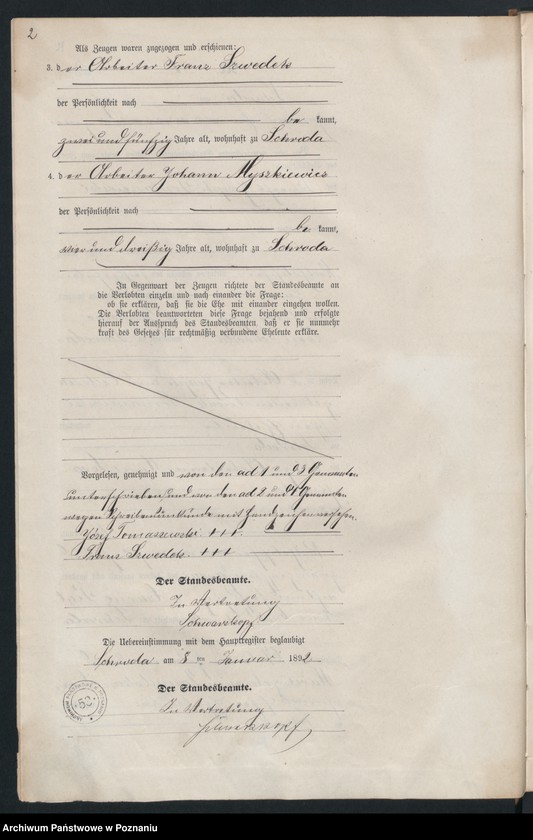 2
Als Zeugen waren zugezogen und erschienen:
3. der Arbeiter Franz Szwedek
der Persönlichkeit nach
be kannt,
zweiundfünfzig Jahre alt, wohnhaft zu Schroda
4. der Arbeiter Johann Myszkiewicz
der Persönlichkeit nach
be kannt,
vierunddreißig Jahre alt, wohnhaft zu Schroda
In Gegenwart der Zeugen richtete der Standesbeamte an
die Verlobten einzeln und nach einander die Frage:
ob sie erklären, daß sie die Ehe mit einander eingehen wollen.
Die Verlobten beantworteten diese Frage bejahend und erfolgte
hierauf der Ausspruch des Standesbeamten, daß er sie nunmehr
kraft des Gesetzes für rechtmäßig verbundene Eheleute erkläre.
Vorgelesen, genehmigt und von den ad 1 und 3 Genannten
unterschrieben und von den ad 2 und 4 Genannten
wegen Schreibensunkunde mit Handzeichen versehen.
Józef Tomaszewski +++.
Franz Szwedek. +++
Der Standesbeamte.
In Vertretung
Schwarzkopf
Die Uebereinstimmung mit dem Hauptregister beglaubigt
Schroda am 8 ten Januar 1892
Der Standesbeamte.
In Vertretung
Schwarzkopf
Archiwum Państwowe w Poznaniu